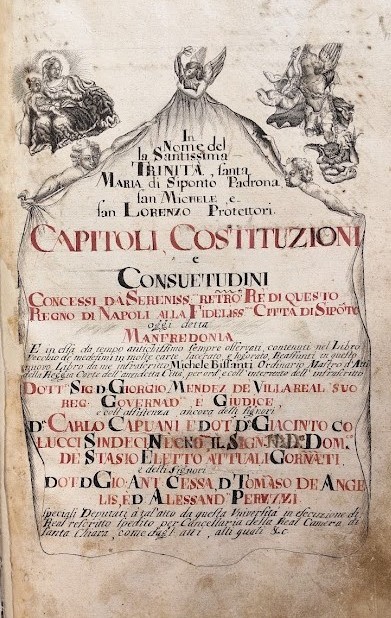 In
Nome del
la Santissima
TRINITÀ, santa
MARIA di Siponto Padrona,
san MICHELE e
san LORENZO Protettori.
CAPITOLI, COSTITUZIONI
e
CONSUETUDINI
CONCESSI DA SERENISS RETRO RE DI QUESTO
REGNO DI NAPOLI ALLA FIDELISS CITTÀ DI SIPŌTO
oggi detta
MANFREDONIA
E in essa da tempo antichissimo sempre osservati, contenuti nel Libro
Vecchio de medesimi in molte carte lacerato, e logorato, Reassunti in questo
nuovo Libro da me infrascritto Michele Bissanti Ordinario Mastro d'Atti
della Regia Corte dell' anzidetta Città, per ord. e coll' intervento dell' infrascritto
DOTT SIG D GIORGIO MENDEZ DE VILLAREAL SUO
REG GOVERNAD E GIUDICE,
e coll' assistenza ancora delli signori
D CARLO CAPUANI E DOT D GIACINTO CO
LUCCI SINDECI IL SIGN DOM
DE STASIO ELETTO ATTUALI GOVNATI,
e delli signori
DOT D GIO: ANT CESSA, D TOMASO DE ANGE
LIS, ED ALESSAND PERUZZI.
speciali Deputati à tal' atto da questa Università in esecuzione di
Real rescritto spedito per Cancellaria della Real Camera di
santa Chiara, come dagli atti, alli quali &c